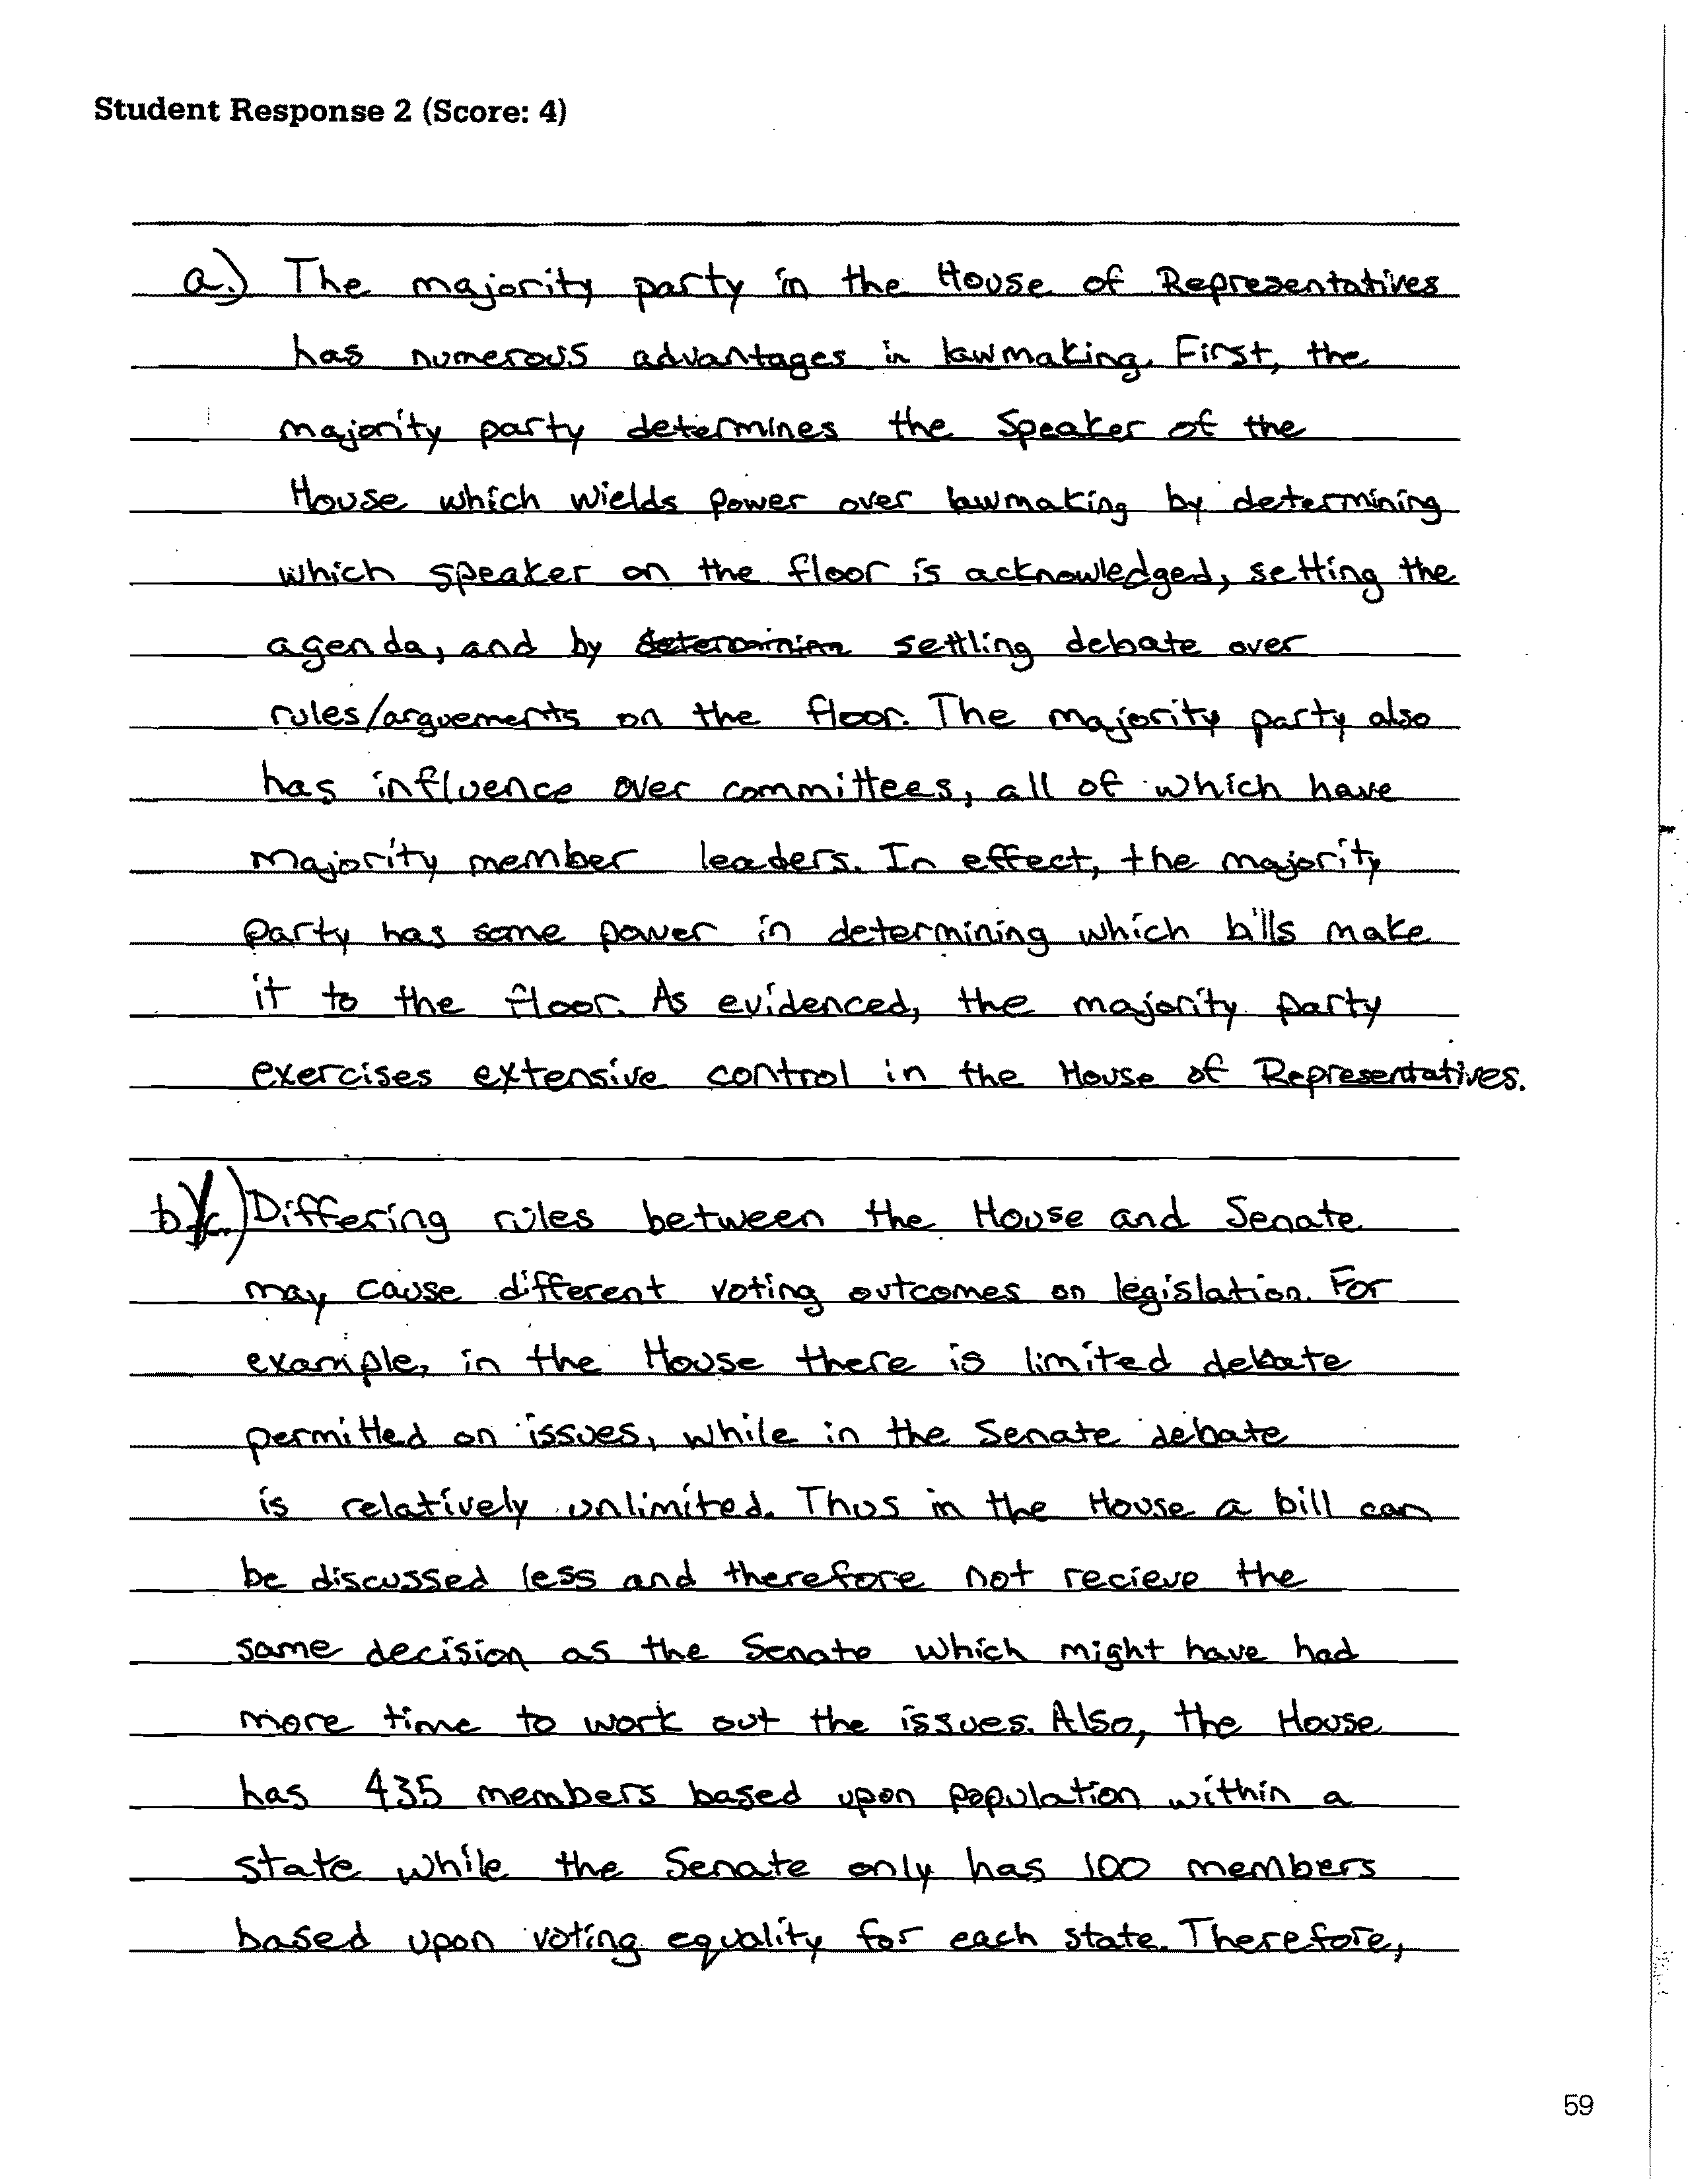 Student Response 2 (Score: 4)
a.) The majority party in the House of Representatives
has numerous advantages in lawmaking. First, the
majority party determines the Speaker of the
House which wields power over lawmaking by determining
which speaker on the floor is acknowledged, setting the
agenda, and by settling debate over
rules/arguements on the floor. The majority party also
has influence over committees, all of which have
majority member leaders. In effect, the majority
party has some power in determining which bills make
it to the floor. As evidenced, the majority party
exercises extensive control in the House of Representatives.
b)/c.) Differing rules between the House and Senate
may cause different voting outcomes on legislation. For
example, in the House there is limited debate
permitted on issues, while in the Senate debate
is relatively unlimited. Thus in the House a bill can
be discussed less and therefore not recieve the
same decision as the Senate which might have had
more time to work out the issues. Also, the House
has 435 members based upon population within a
state while the Senate only has 100 members
based upon voting equality for each state. Therefore,
59